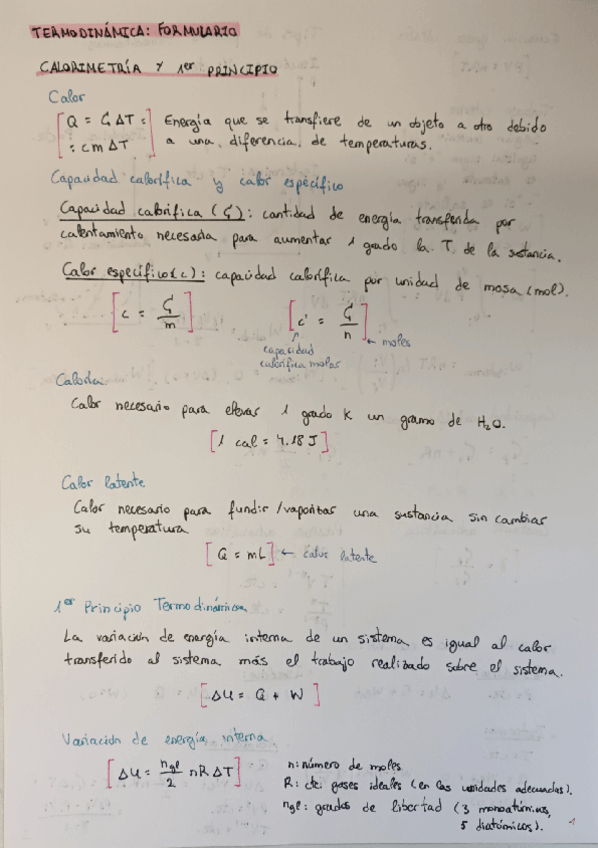 TERMODINÁMICA: FORMULARIO
CALORIMETRÍA Y 1er PRINCIPIO
Calor
[Q = C ΔT = Energía que se transfiere de un objeto a otro debido
= c m ΔT] a una diferencia de temperaturas.
Capacidad calorífica y calor específico
Capacidad calorífica (C): cantidad de energía transferida por
calentamiento necesaria para aumentar 1 grado la T de la sustancia.
Calor específico (c): capacidad calorífica por unidad de masa (mol).
[c = C/m] [c' = C/n] ← moles
capacidad
calorífica molar
Caloría
Calor necesario para elevar 1 grado K un gramo de H₂O.
[1 cal = 4.18 J]
Calor latente
Calor necesario para fundir/vaporizar una sustancia sin cambiar
su temperatura
[Q = mL] ← calor latente
1er Principio Termodinámica
La variación de energía interna de un sistema es igual al calor
transferido al sistema más el trabajo realizado sobre el sistema.
[ΔU = Q + W]
Variación de energía interna
[ΔU = ngl/2 nRΔT] n: número de moles
R: cte gases ideales (en las unidades adecuadas).
ngl: grados de libertad (3 monoatómicos,
5 diatómicos).
1